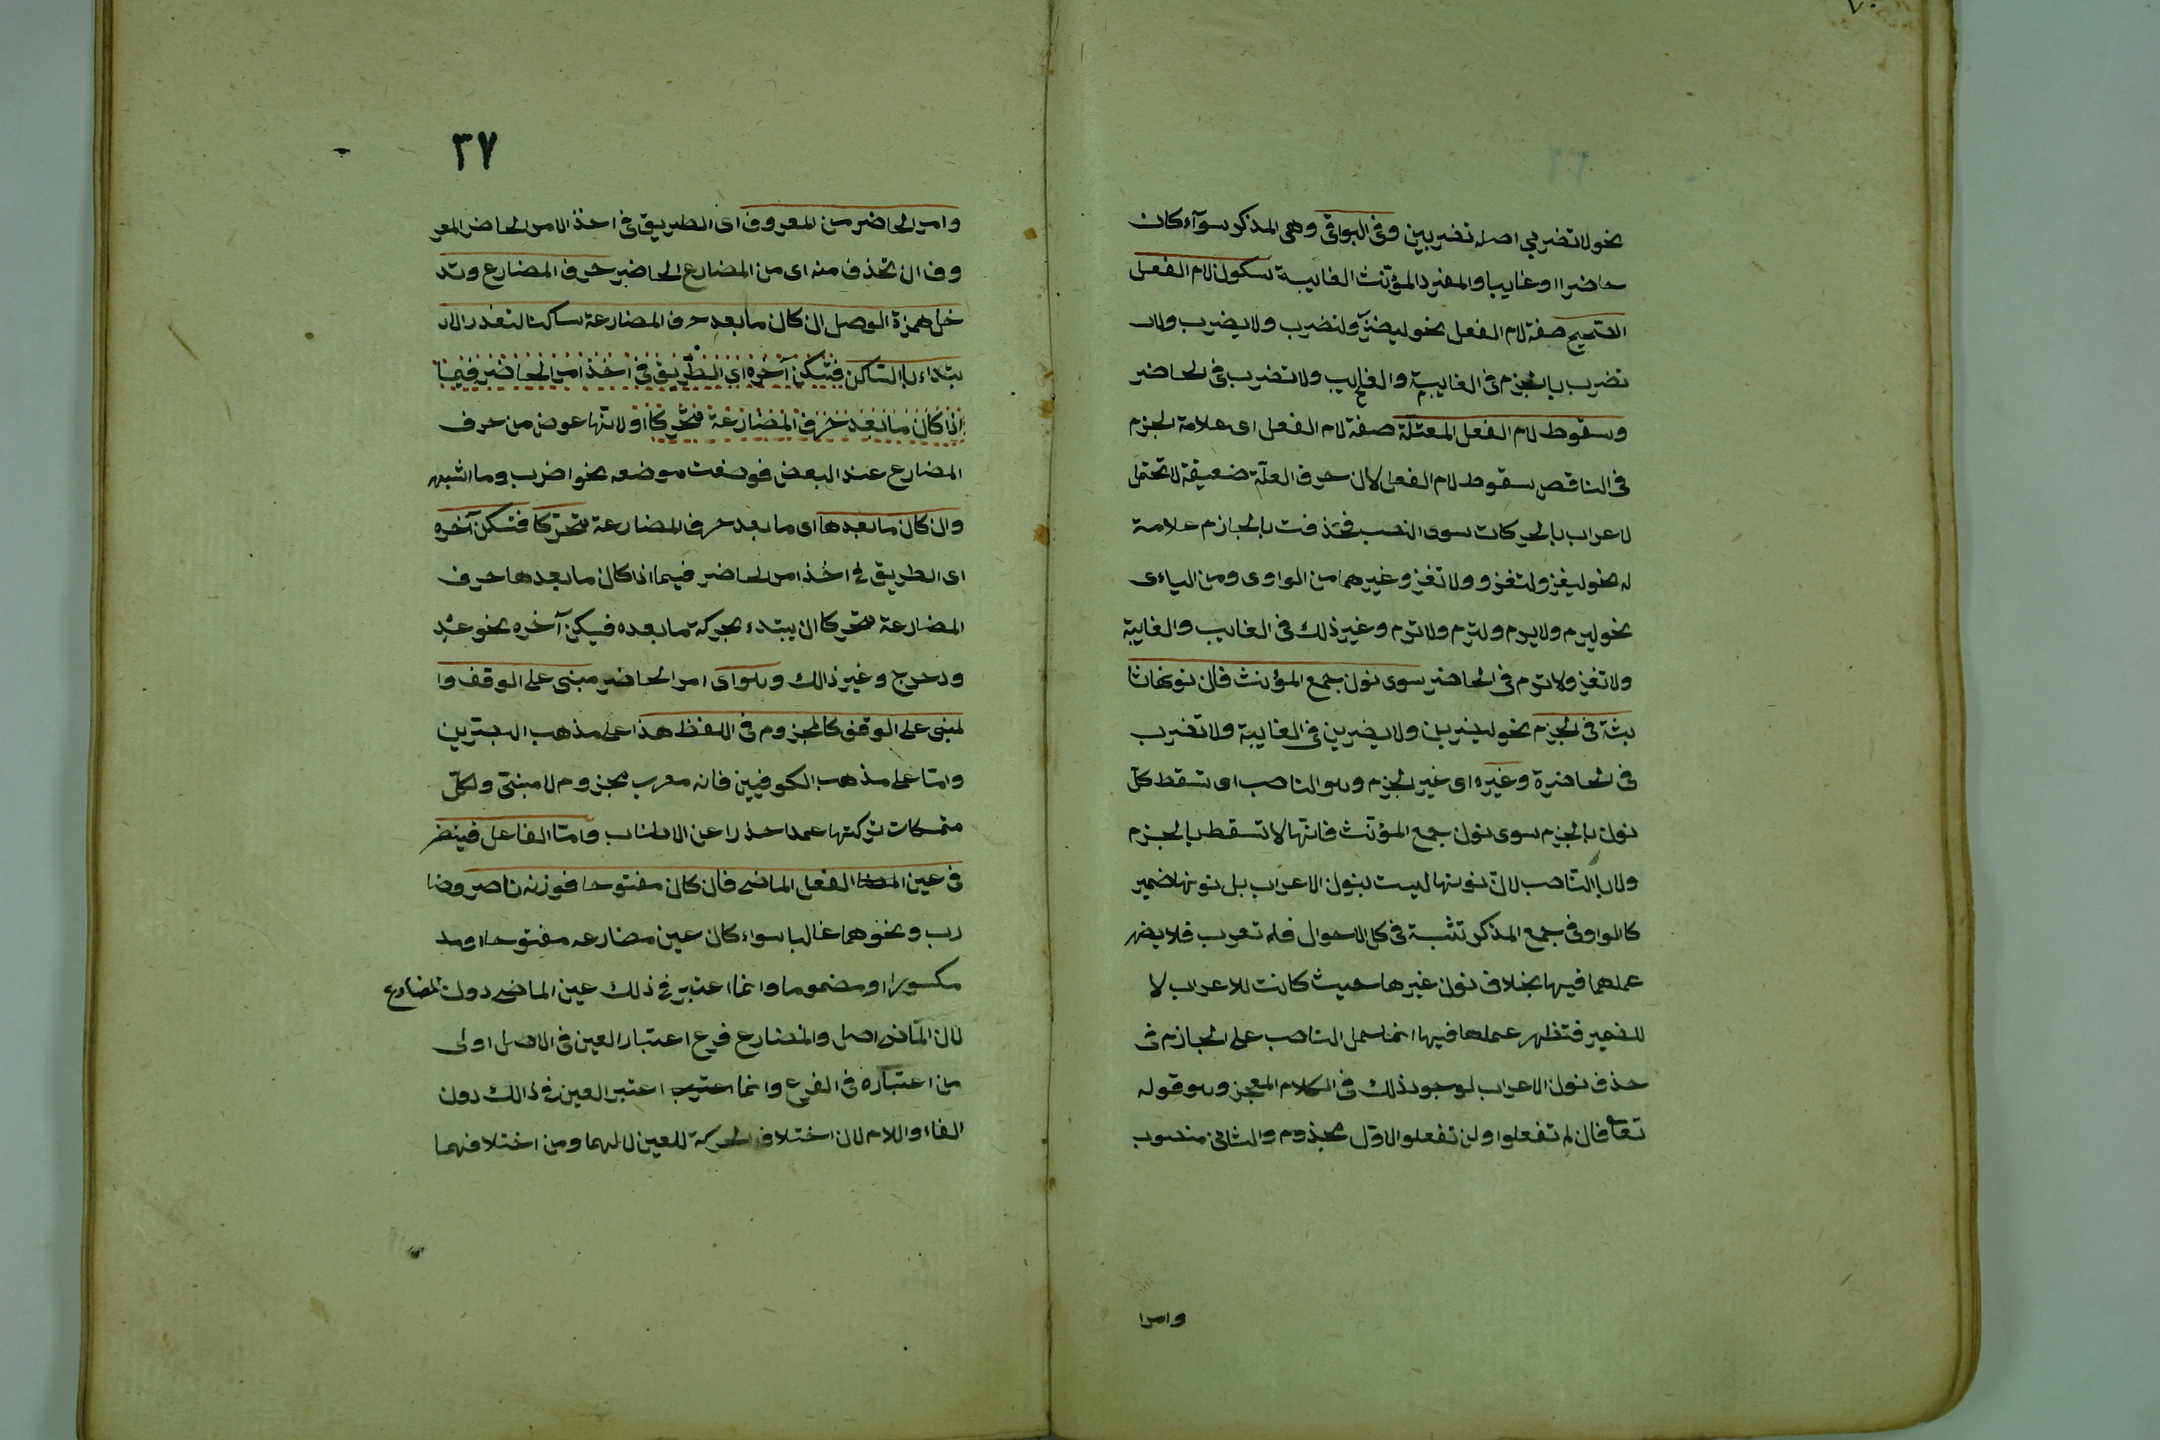 نحو لا تضربي اصله تضربين وفى البواقى وهى المذكر سوآء كان
حاضرا او غايبا والمفرد المؤنث الغايبة سكون لام الفعل
الصحيح صفة لام الفعل نحو ليضرب ولتضرب ولا يضرب ولا
تضرب بالجزم فى الغايبة والغايب ولا تضرب فى الحاضر
وسقوط لام الفعل المعتلة صفة لام الفعل اى علامة الجزم
فى الناقص سقوط لام الفعل لان حرف العلّة ضعيفة لا تحتمل
لاعراب بالحركات سوى النصب فحذفت بالجازم علامة
له نحو ليغز ولتغز وولا تغز وغيرهما من الواوى ومن اليائى
نحو ليرم ولا يرم ولترم ولا ترم وغير ذلك فى الغايب والغايبة
ولا تغز ولا ترم فى الحاضر سوى نون جمع المؤنث فان نونها ثا
بتة فى الجزم نحو ليضربن ولا يضربن فى الغايبة ولا تضرب
فى الحاضرة وغيره اى غير الجزم وهو الناصب اى تسقط كلّ
نون بالجزم سوى نون جمع المؤنث فانّها لا تسقط بالجزم
ولا بالنّاصب لانّ نونها ليست بنون الاعراب بل نونها ضمير
كالواو فى جمع المذكر تثبة فى كل الاحوال فلم تعرب فلا يضهر
عملهما فيها بخلاف نون غيرها حيث كانت للاعراب لا
للضمير فتظهر عملها فيها انما حمل الناصب على الجازم فى
حذف نون الاعراب لوجود ذلك فى الكلام المعجز وهو قوله
تعا فان لم تفعلوا ولن تفعلوا الاوّل مجذوم والثانى منصوب
وامرا
٣٧
وامر الحاضر من المعروف اى الطريق فى اخذ الامر الحاضر المعر
وف ان تحذف منه اى من المضارع الحاضر حرف المضارع وتد
خل همزة الوصل ان كان ما بعد حرف المضارعة ساكنا لتعذر الا
بتداء بالسّاكن فتسكن آخره اى الطّريق فى اخذ امر الحاضر فيما
اذا كان ما بعد حرف المضارعة متحركا او لانّها عوض من حرف
المضارع عند البعض فوضعت موضعه نحو اضرب وما اشبهه
وان كان ما بعدها اى ما بعد حرف المضارعة متحرّكا فتسكن آخره
اى الطريق فى اخذ امر الحاضر فيما اذا كان ما بعدها حرف
المضارعة متحركا ان يبتدء بحركة ما بعده فيسكن آخره نحو عد
ودحرج وغير ذالك وهو اى امر الحاضر مبنى على الوقف وا
لمبنى على الوقف كالمجزوم فى اللفظ هذا على مذهب البصريين
وامّا على مذهب الكوفيين فانه معرب مجزوم لا مبنىّ ولكلّ
متمسكات تركتها عمدا حذرا عن الاطناب وامّا الفاعل فينضر
فى عين الفعل الماضى فان كان مفتوحا فوزنه ناصر وضا
رب ونحوهما غالبا سواء كان عين مضارعه مفتوحا او
مكسورا او مضموما وانما اعتبر فى ذلك عين الماضى دون المضارع
لان الماضى اصل والمضارع فرع اعتبار العين فى الاصل اولى
من اعتباره فى الفرع وانما اعتبر العين فى ذالك دون
الفاء واللام لان اختلاف الحركة للعين لا لهما ومن اختلافهما